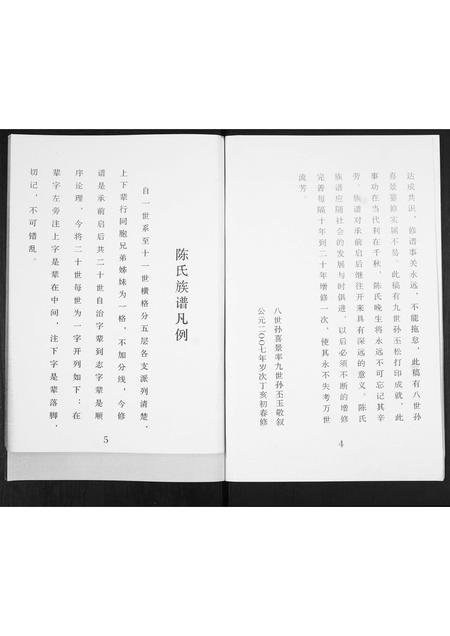 达成共识，修谱事关永远，不能拖怠，此稿有八世孙
喜景纂修实属不易，此稿有九世孙玉松打印成就，此
事功在当代利在千秋，陈氏晚生将永远不可忘记其辛
劳。族谱对承前启后继往开来具有深远的意义。陈氏
族谱应随社会的发展与时俱进，以后必须不断的增修
完善每隔十年到二十年增修一次，使其永不失考万世
流芳。
八世孙喜景率九世孙玉玉敬叙
公元二〇〇七年岁次丁亥初春修
4
陈氏族谱凡例
自一世系至十一世横格分五层各支派列清楚，
上下辈行同胞兄弟姊妹为一格，不加分线，今修
谱是承前启后共二十世自治字辈到志字辈是顺
序论理，今将二十世每世为一字开列如下：在
辈字左旁注上字是辈在中间，注下字是辈落脚，
切记，不可错乱。
5